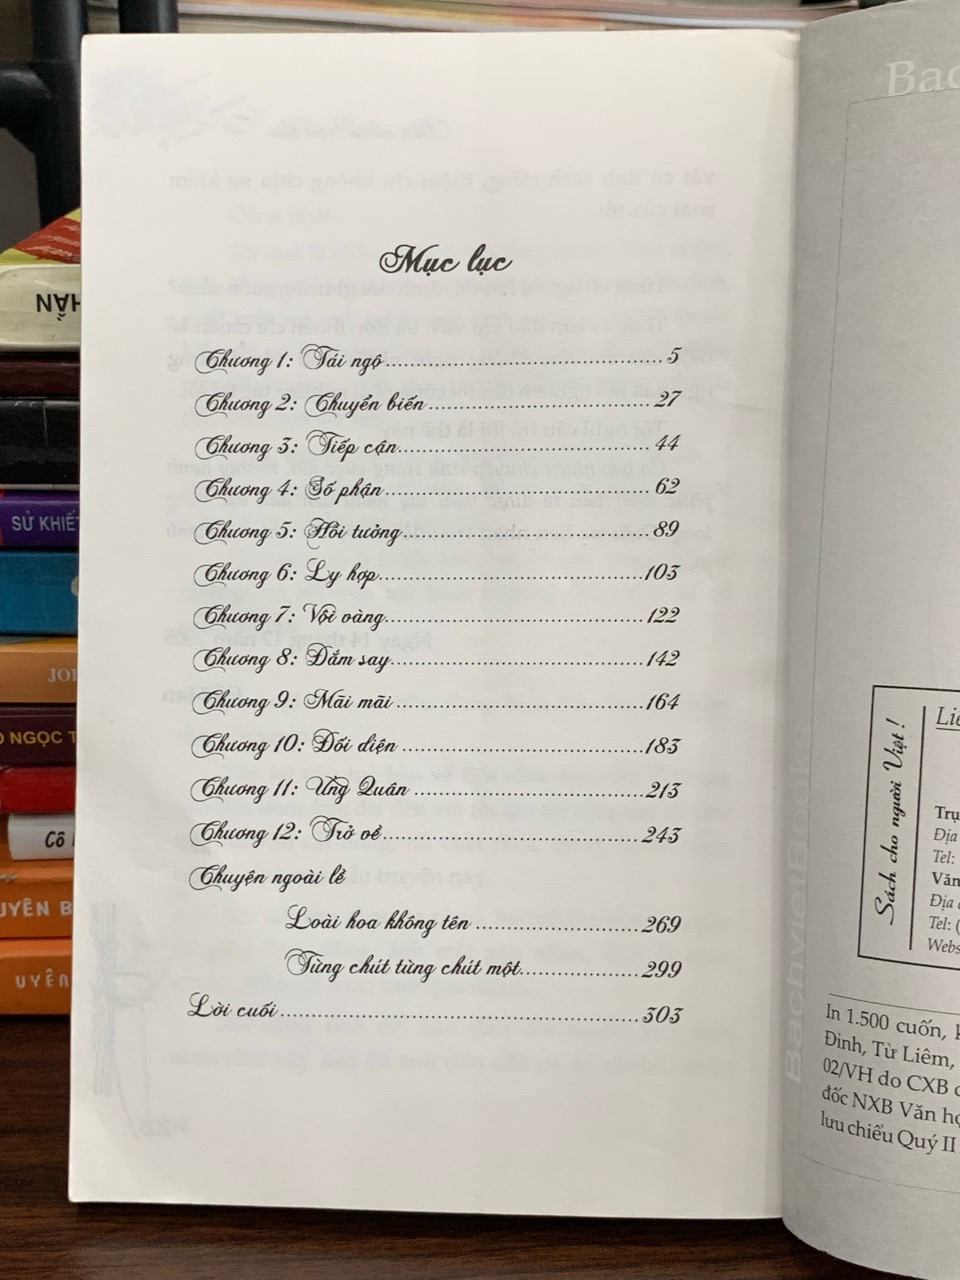 Mục lục
Chương 1: Tái ngộ....................................5
Chương 2: Chuyển biến....................................27
Chương 3: Tiếp cận....................................44
Chương 4: Số phận....................................62
Chương 5: Hồi tưởng....................................89
Chương 6: Ly hợp....................................103
Chương 7: Vội vàng....................................122
Chương 8: Đắm say....................................142
Chương 9: Mãi mãi....................................164
Chương 10: Đối diện....................................183
Chương 11: Ưng Quân....................................213
Chương 12: Trở về....................................243
Chuyện ngoài lề
Loài hoa không tên....................................269
Từng chút từng chút một....................................299
Lời cuối....................................303
SỬ KHIẾ
NGỌC T
Cô
UYÊN B
UYÊN
Bac
BachvietB
Sách cho người Việt !
Liê
Trụ
Địa
Tel:
Văn
Địa
Tel: (
Webs
In 1.500 cuốn, k
Đinh, Từ Liêm,
02/VH do CXB
đốc NXB Văn họ
lưu chiểu Quý II